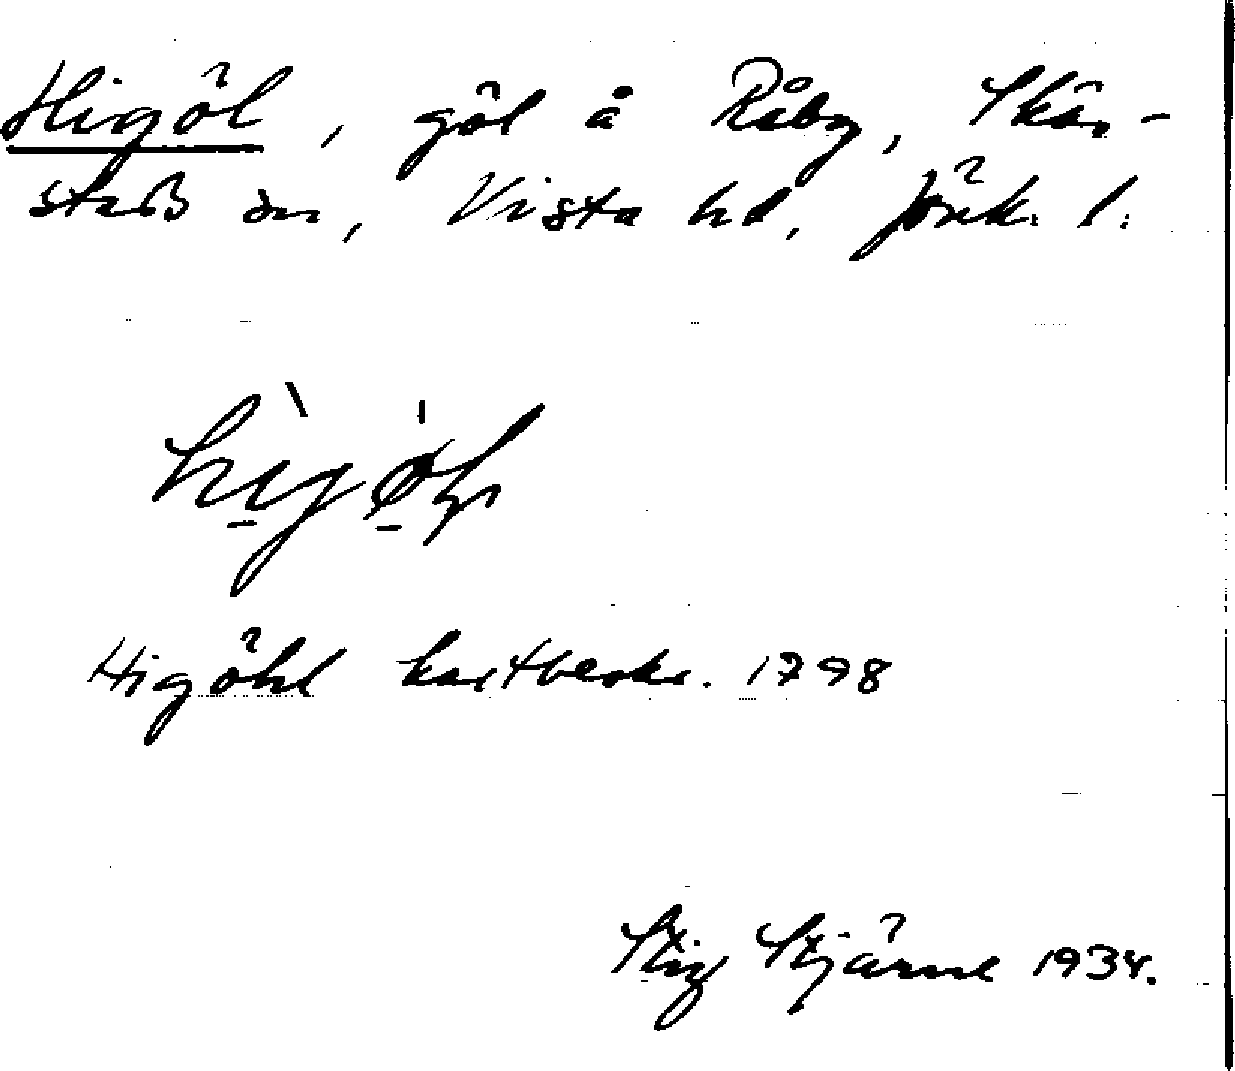 Higöl, göl å Råby, Skär-
stads sn, Vista hd, Jönk. l.
Higöhl kartbeskr. 1798
Stig Stjärne 1934.